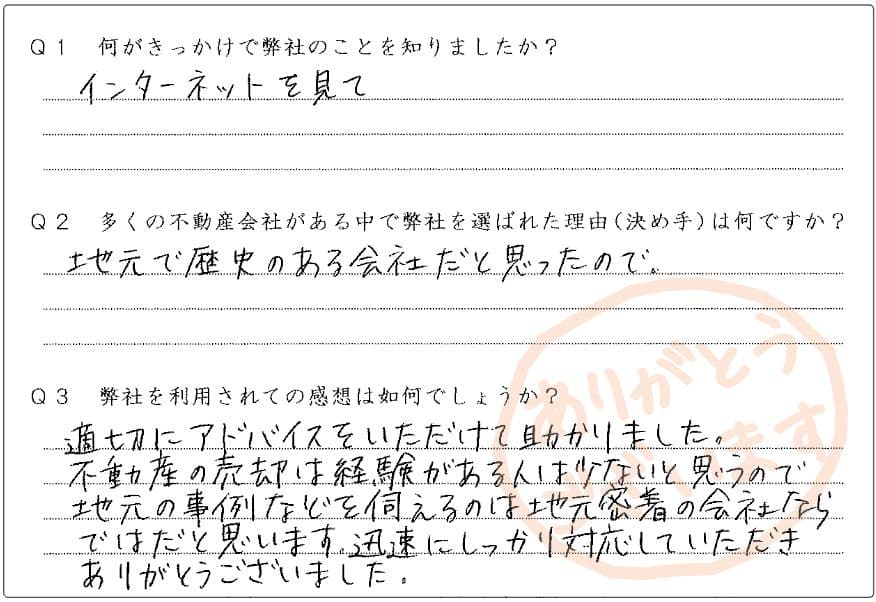 Q1 何がきっかけで弊社のことを知りましたか?
インターネットを見て
Q2 多くの不動産会社がある中で弊社を選ばれた理由(決め手)は何ですか?
地元で歴史のある会社だと思ったので。
Q3 弊社を利用されての感想は如何でしょうか?
適切にアドバイスをいただけて助かりました。
不動産の売却は経験がある人は少ないと思うので
地元の事例などを伺えるのは地元密着の会社なら
ではだと思います。迅速にしっかり対応していただき
ありがとうございました。
ありがとう
ございます